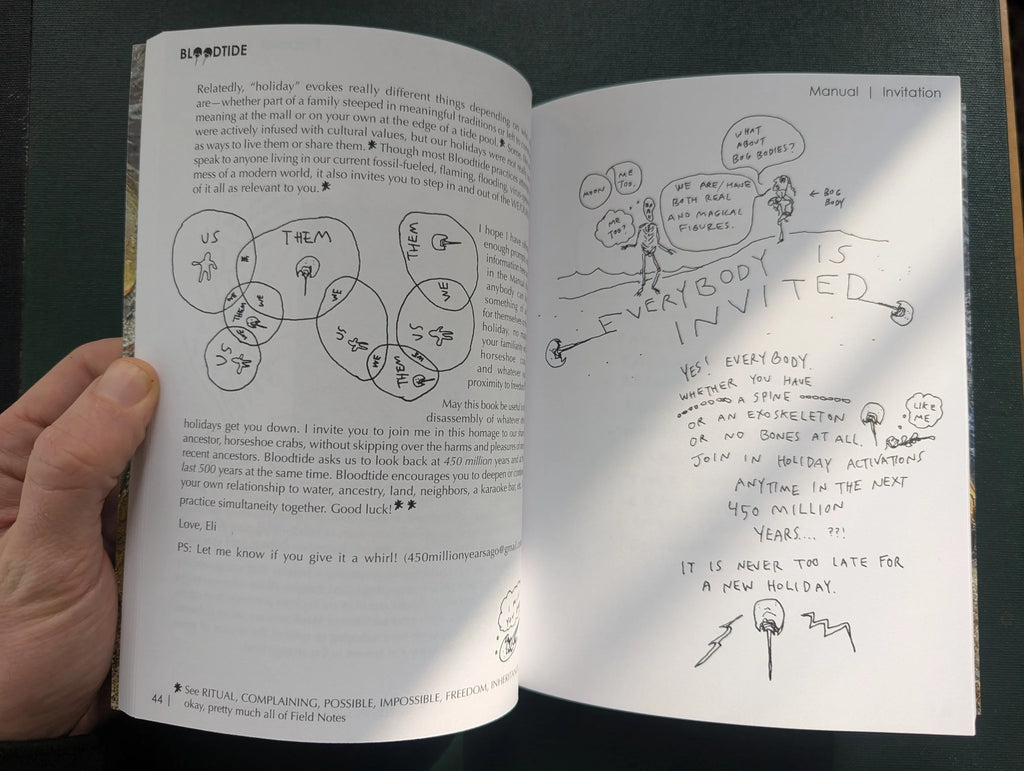 BLOODTIDE
Relatedly, "holiday" evokes really different things depending on
are—whether part of a family steeped in meaningful traditions or left to
meaning at the mall or on your own at the edge of a tide pool.*
were actively infused with cultural values, but our holidays were not
as ways to live them or share them.* Though most Bloodtide practices
speak to anyone living in our current fossil-fueled, flaming, flooding,
mess of a modern world, it also invites you to step in and out of the
of it all as relevant to you.*
US
THEM
WE
WE
THEM
WE
US
WE
US
WE
THEM
WE
US
WE
THEM
I hope I have
enough
information
in the Manual
anybody can
something
for themselves
holiday, no
your familiarity
horseshoe
and whatever
proximity to
May this book be useful
disassembly of whatever
holidays get you down. I invite you to join me in this homage to our
ancestor, horseshoe crabs, without skipping over the harms and pleasures of
recent ancestors. Bloodtide asks us to look back at 450 million years and
last 500 years at the same time. Bloodtide encourages you to deepen or
your own relationship to water, ancestry, land, neighbors, a karaoke bar,
practice simultaneity together. Good luck!**
Love, Eli
PS: Let me know if you give it a whirl! (450millionyearsago@
* See RITUAL, COMPLAINING, POSSIBLE, IMPOSSIBLE, FREEDOM,
okay, pretty much all of Field Notes
44 |
Manual | Invitation
WHAT
ABOUT
BOG BODIES?
MOON
ME
TOO.
ME
TOO?
WE ARE/HAVE
BOTH REAL
AND MAGICAL
FIGURES.
← BOG
BODY
EVERYBODY IS
INVITED
YES! EVERYBODY.
WHETHER YOU HAVE
A SPINE
OR AN EXOSKELETON
OR NO BONES AT ALL.
LIKE
ME
JOIN IN HOLIDAY ACTIVATIONS
ANYTIME IN THE NEXT
450 MILLION
YEARS.... ??!
IT IS NEVER TOO LATE FOR
A NEW HOLIDAY.